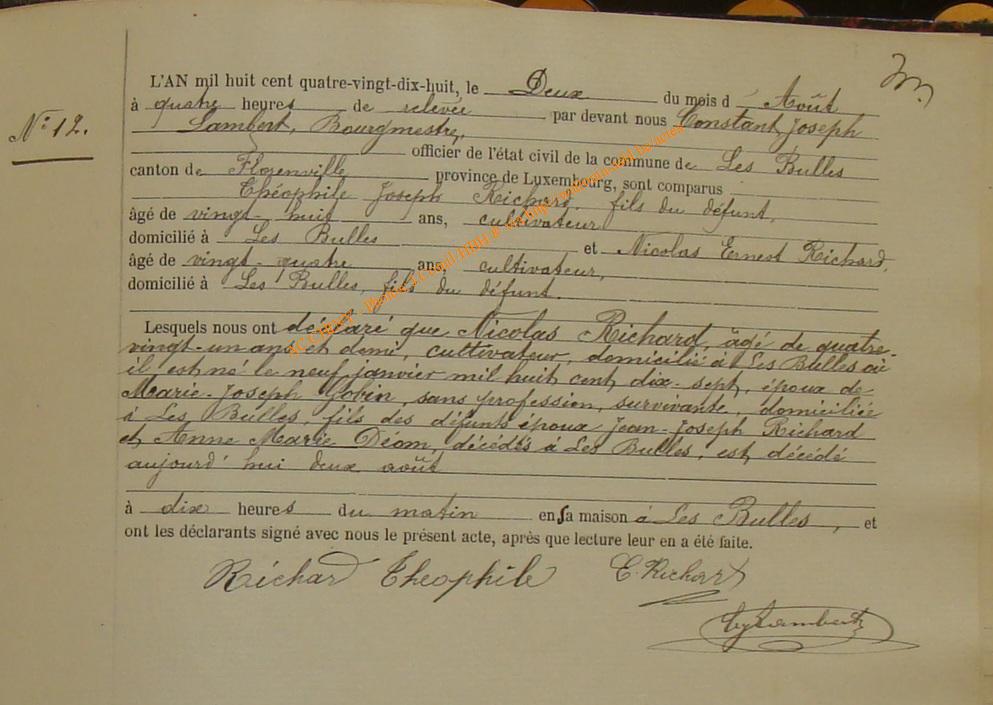 N° 12.
L'AN mil huit cent quatre-vingt-dix-huit, le Deux du mois d' Août
à quatre heures de relevée par devant nous Constant, Joseph
Lambert, Bourgmestre,
officier de l'état civil de la commune de Les Bulles
canton de Florenville province de Luxembourg, sont comparus
Théophile Joseph Richard, fils du défunt,
âgé de vingt-huit ans, cultivateur
domicilié à Les Bulles et Nicolas Ernest Richard,
âgé de vingt-quatre ans, cultivateur,
domicilié à Les Bulles, fils du défunt.
Lesquels nous ont déclaré que Nicolas Richard, âgé de quatre-
vingt-un ans et demi, cultivateur, domicilié à Les Bulles où
il est né le neuf janvier mil huit cent dix-sept, époux de
Marie-Joseph Gobin, sans profession, survivante, domiciliée
à Les Bulles, fils des défunts époux Jean-Joseph Richard
et Anne Marie Déom, décédés à Les Bulles, est décédé
aujourd'hui deux août
à dix heures du matin en sa maison à Les Bulles, et
ont les déclarants signé avec nous le présent acte, après que lecture leur en a été faite.
Richard Theophile E. Richard
Lambert